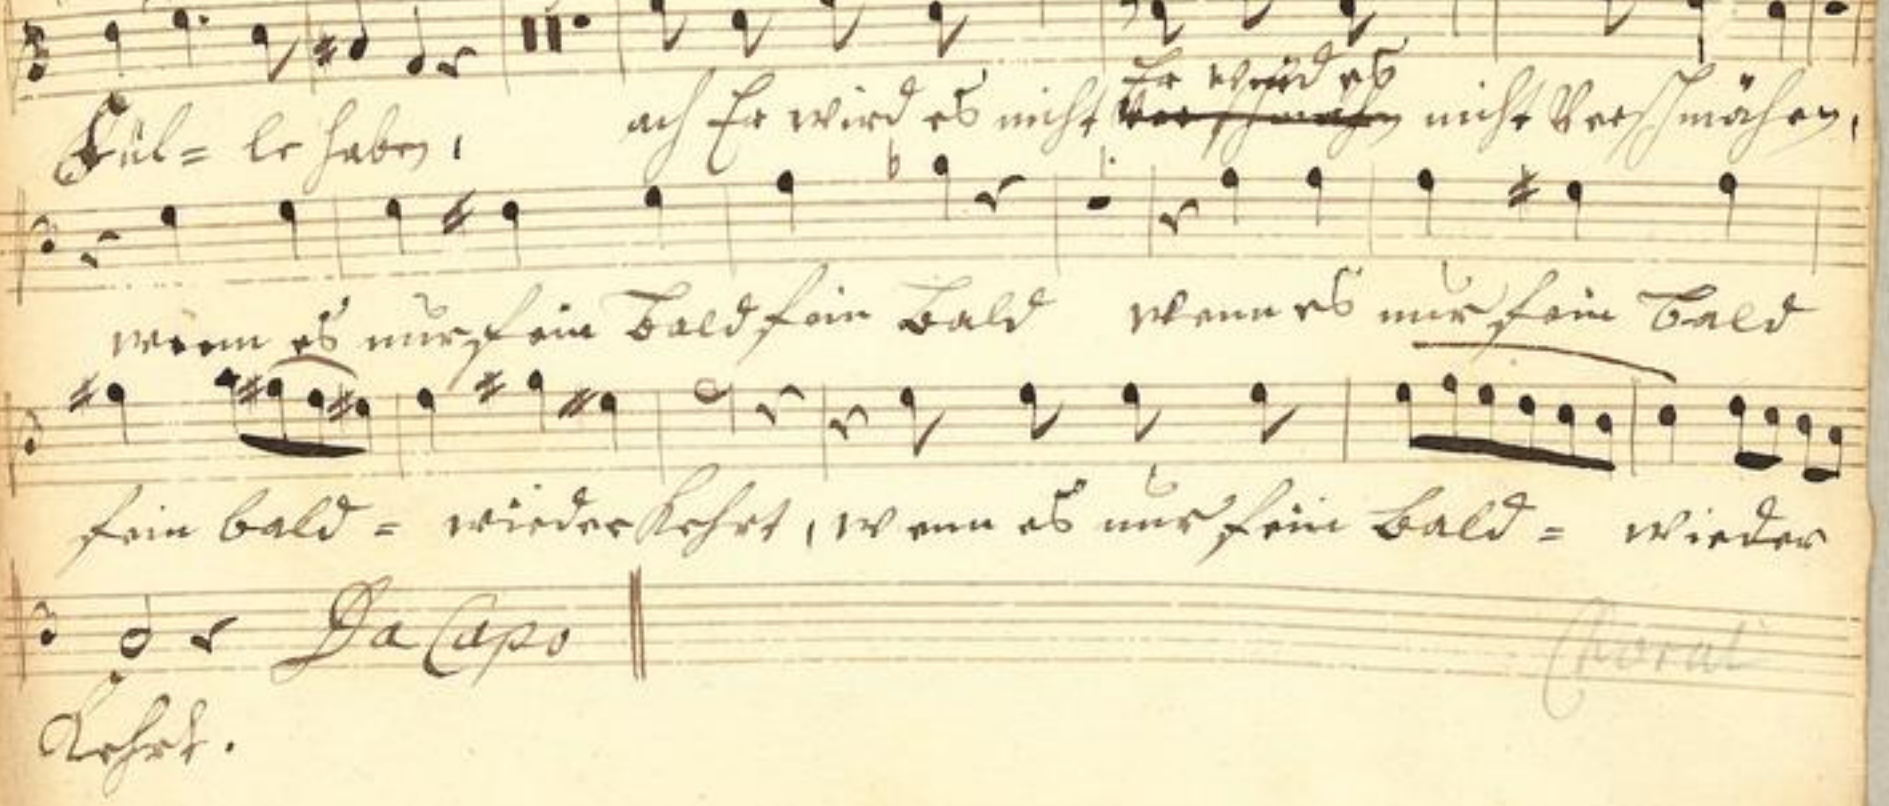 Er wird es
Fül= le haben, ach Er wird es nicht verschmähn nicht verschmähen,
wenn es nur fein bald fein bald wenn es nur fein bald
fein bald = wieder kehrt, wenn es nur fein bald = wieder
Da Capo
Choral
kehrt.